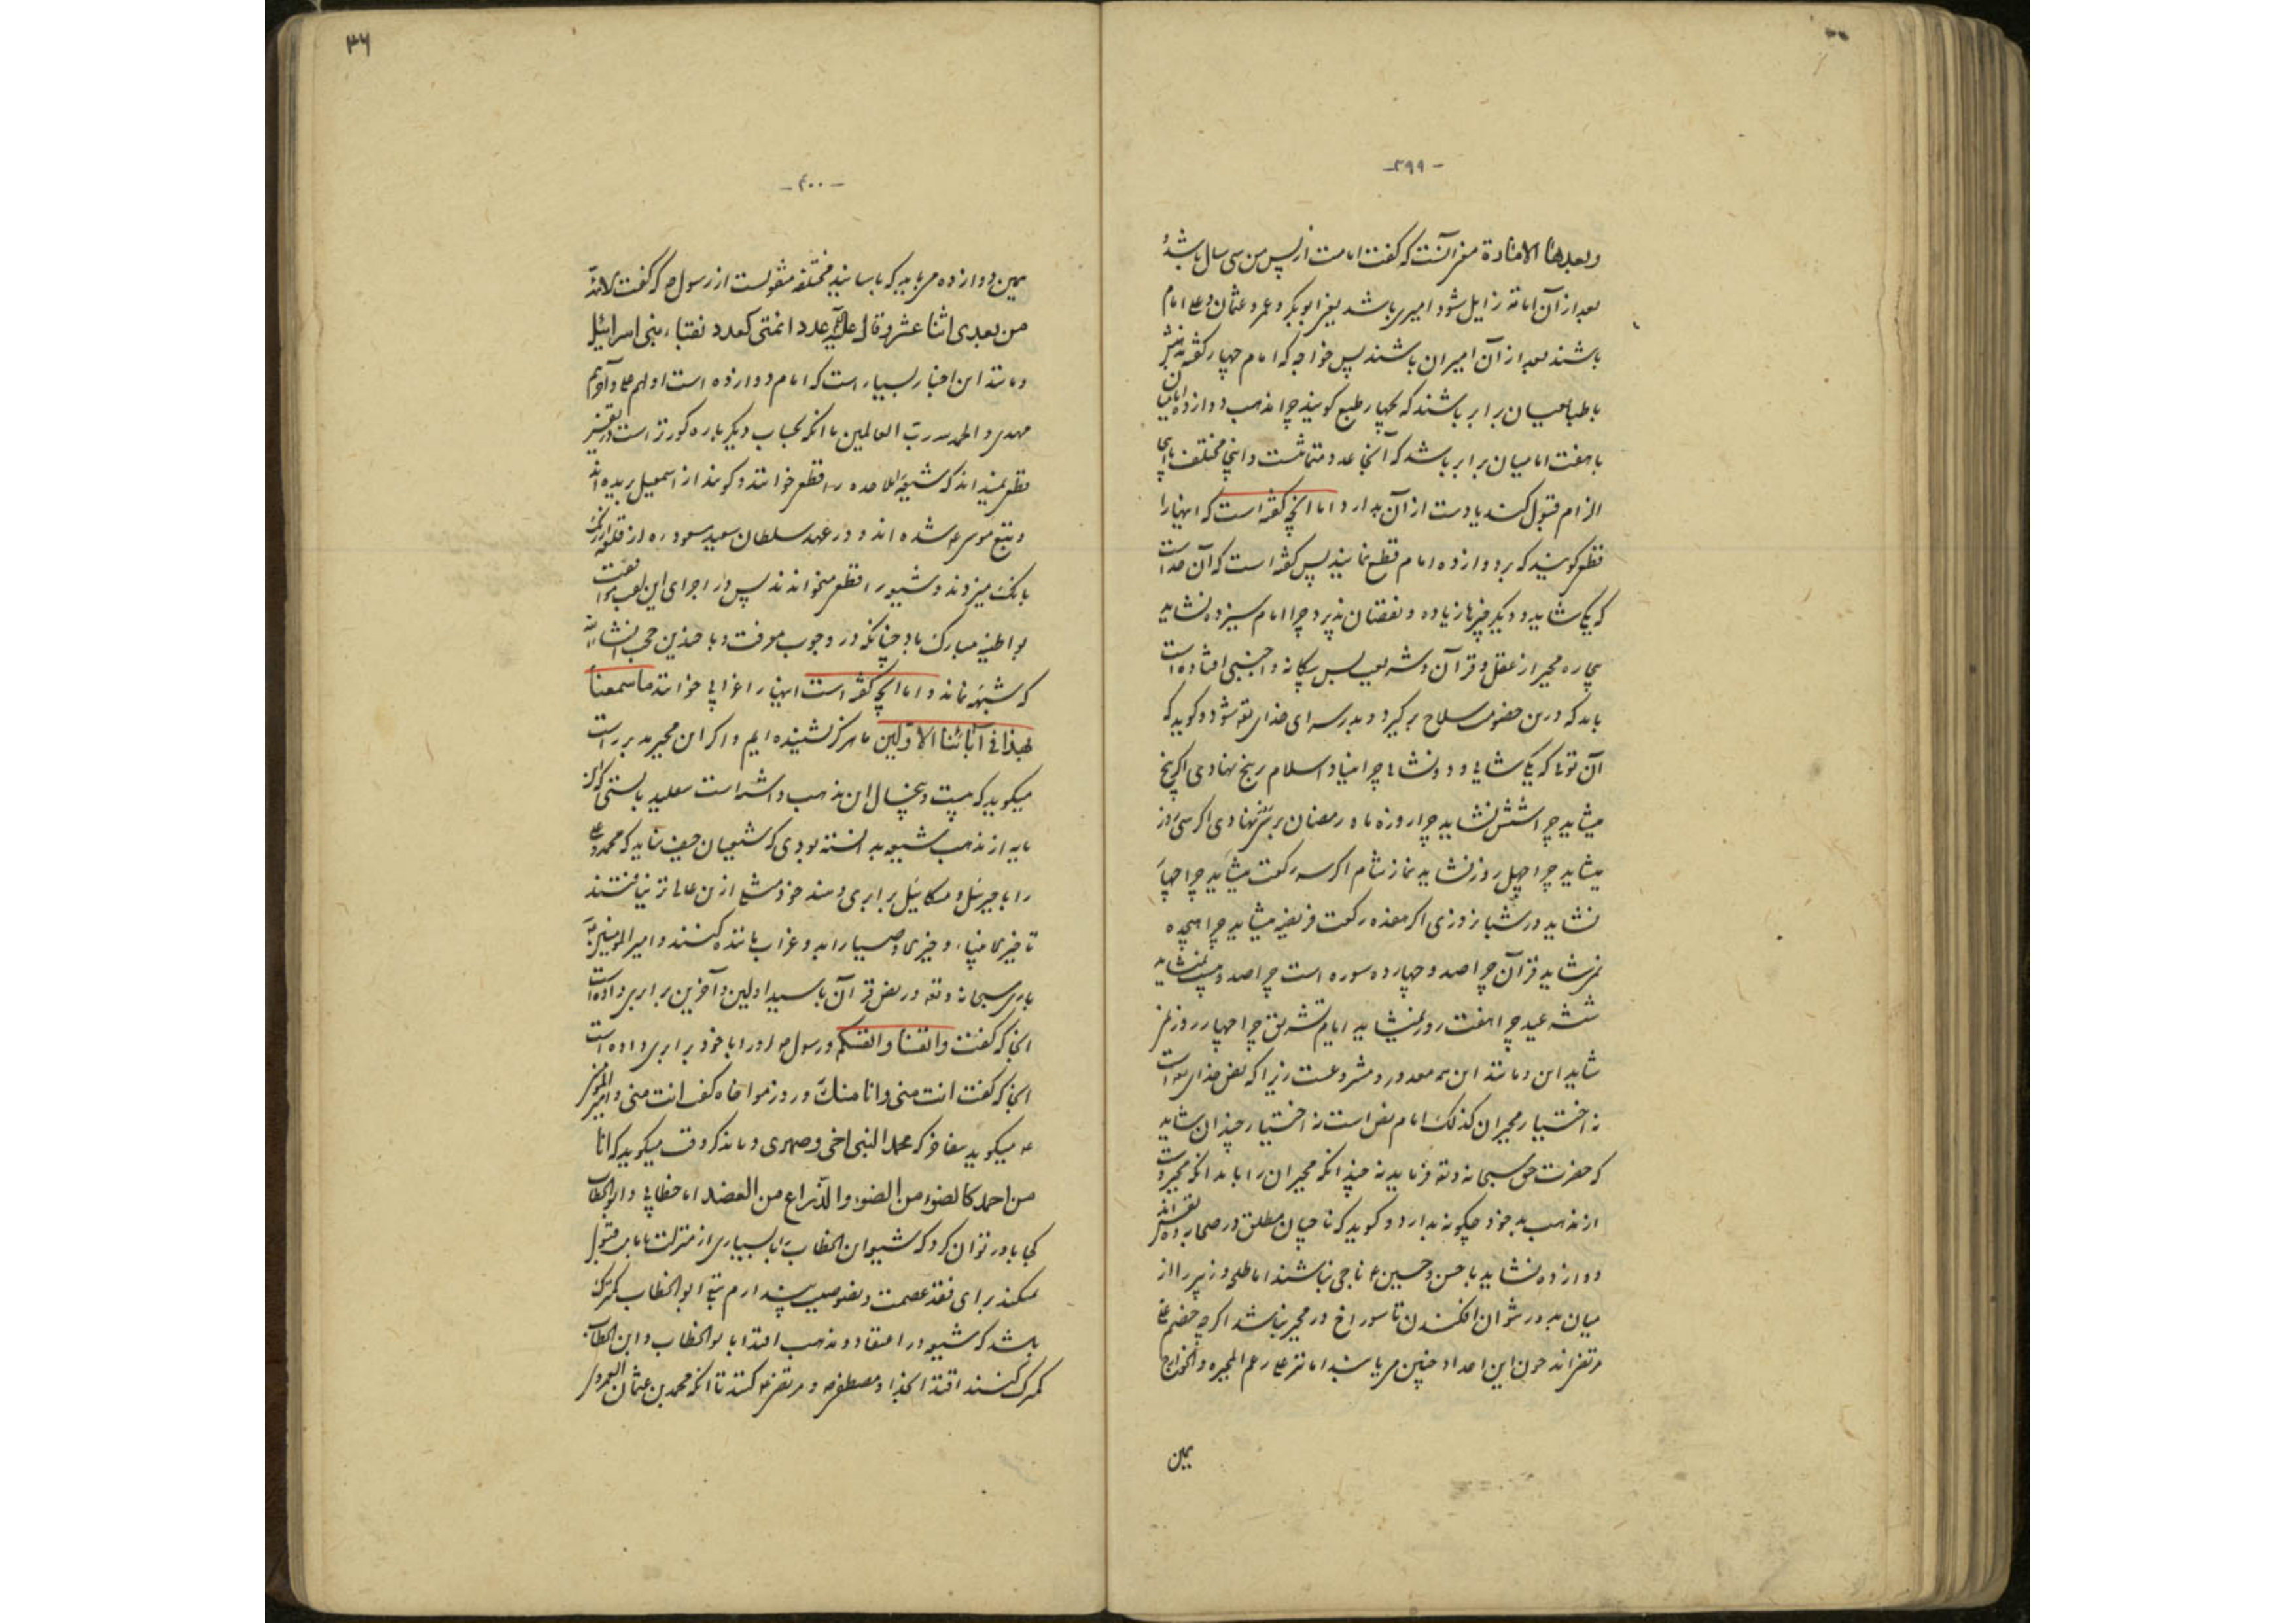 -۳۹۹-
وبعدها الامارة معنی آنست که گفت امامت از پس من سی سال باشد و
بعد از آن امامة زایل شود امیری باشد یعنی ابوبکر و عمر و عثمان و علی امام
باشند بعد از آن امیران باشند پس خواجه که امام چهار گفته
با طباعیان برابر باشند که بچهار طبع گویند چرا مذهب دوازده امامیان
با هفت امامیان برابر باشد که آنجا عدد متماثلست و اینجا مختلف
الزام قبول کند یا دست از آن بدارد و اما آنچه گفته است که اینها را
قطعی گویند که بر دوازده امام قطع نمایند پس گفته است که آن خداست
که یکی شاید و دیگر چیزها زیاده و نقصان پذیرد چرا امام سیزده نشاید
بیچاره مجبر از عقل و قرآن و شریعت بس بیگانه و اجنبی افتاده است
باید که درین خصومت سلاح برگیرد و بدر سرای خدای تعالی شود و گوید که
آن توئی که یکی شائی و دو نشائی چرا بنیاد اسلام بر پنج نهادی اگر پنج
میشاید چرا شش نشاید چرا روزه ماه رمضان بر سی نهادی اگر سی روز
میشاید چرا چهل روز نشاید نماز شام اگر سه رکعت میشاید چرا چهار
نشاید در شبانروزی اگر هفده رکعت فریضه میشاید چرا هیجده
نمی‌شاید قرآن چرا صد و چهارده سوره است چرا صد و بیست نمیشاید
ششه عید چرا هفت روز نمیشاید ایام تشریق چرا چهار روز نمی
شاید این و مانند این همه معدود و مشروعست زیرا که نص خدای تعالی است
نه اختیار مجبران کذلک امام نص است نه اختیار چندان شاید
که حضرت حق سبحانه و تعالی فرماید نه چندانکه مجبران را باید آنکه مجبر دست
از مذهب بد خود چگونه بدارد و گوید که ناجیان مطلق در صحابه ده
دوازده نشاید با حسن و حسین ع ناجی نباشند اما طلحه و زبیر را از
میان بدر نتوان افکندن تا سوراخ در مجبر نباشد اگر چه خصم علی
مرتضی‌اند چون این اعداد چنین می‌باشد امامت نیز علی رغم المجبره والخوارج
همین
۳۶
-۴۰۰-
همین دوازده می‌باید که باسانید مختلفه منقولست از رسول ص که گفت الائمة
من بعدی اثنا عشر و قال علیه عدد ائمتی کعدد نقباء بنی اسرائیل
و مانند این اخبار بسیار است که امام دوازده است اولهم علی و آخرهم
مهدی و الحمدلله رب العالمین با آنکه بحساب دیگر باره کورتر است
قطعی نمیداند که شیعه ملاحده را قطعی خوانند و گویند از اسمعیل بریده‌اند
و تبع موسی ع شده‌اند و در عهد سلطان سعید مسعود ره از قلعه
بانگ میزدند و شیعه را قطعی میخواندند پس در اجرای این لقب موافقت
بواطنه مبارک باد چنانکه در وجوب معرفت و با چندین حجت انشاءالله
که شبهه نماند و اما آنچه گفته است اینها را غرابی خوانند ما سمعنا
بهذا فی آبائنا الاولین ما هرگز نشنیده‌ایم و اگر این مجبر مدبر راست
میگوید که بیست و پنجسال این مذهب داشته است بتقلید بایستی که این
مایه از مذهب شیعه بدانسته بودی که شیعیان حیف نماید که محمد و علی
را با جبرئیل و میکائیل برابری دهند خود مثل از من عالی‌تر نیافتند
تا خیر انبیاء و خیر اوصیا را بد و غراب مانند کنند و امیرالمؤمنین را
باری سبحانه و تعالی در نص قرآن با سید اولین و آخرین برابری داده است
آنجا که گفت وانفسنا وانفسکم و رسول ص او را با خود برابری داده است
آنجا که گفت انت منی وانا منک و روز مواخاه گفت انت منی و امیرالمؤمنین
ع میگوید بتفاخر که محمد النبی اخی وصهری و ماند کر وقت میگوید که انا
من احمد کالضوء من الضوء والذراع من العضد اما خطابی و ابوالخطاب
کجا باور توان کرد که شیعه ابن الخطاب را با بسیاری از منزلت بامامت قبول
نمیکند برای فقد عصمت و نصوصیت پندارم بنی ابوالخطاب کمتر که
باشد که شیعه در اعتقاد و مذهب اقتدا بابوالخطاب و ابن الخطاب
کمترک کنند اقتدا بخدا و مصطفی ص و مرتضی ع کنند تا آنکه محمد بن عثمان العمروی